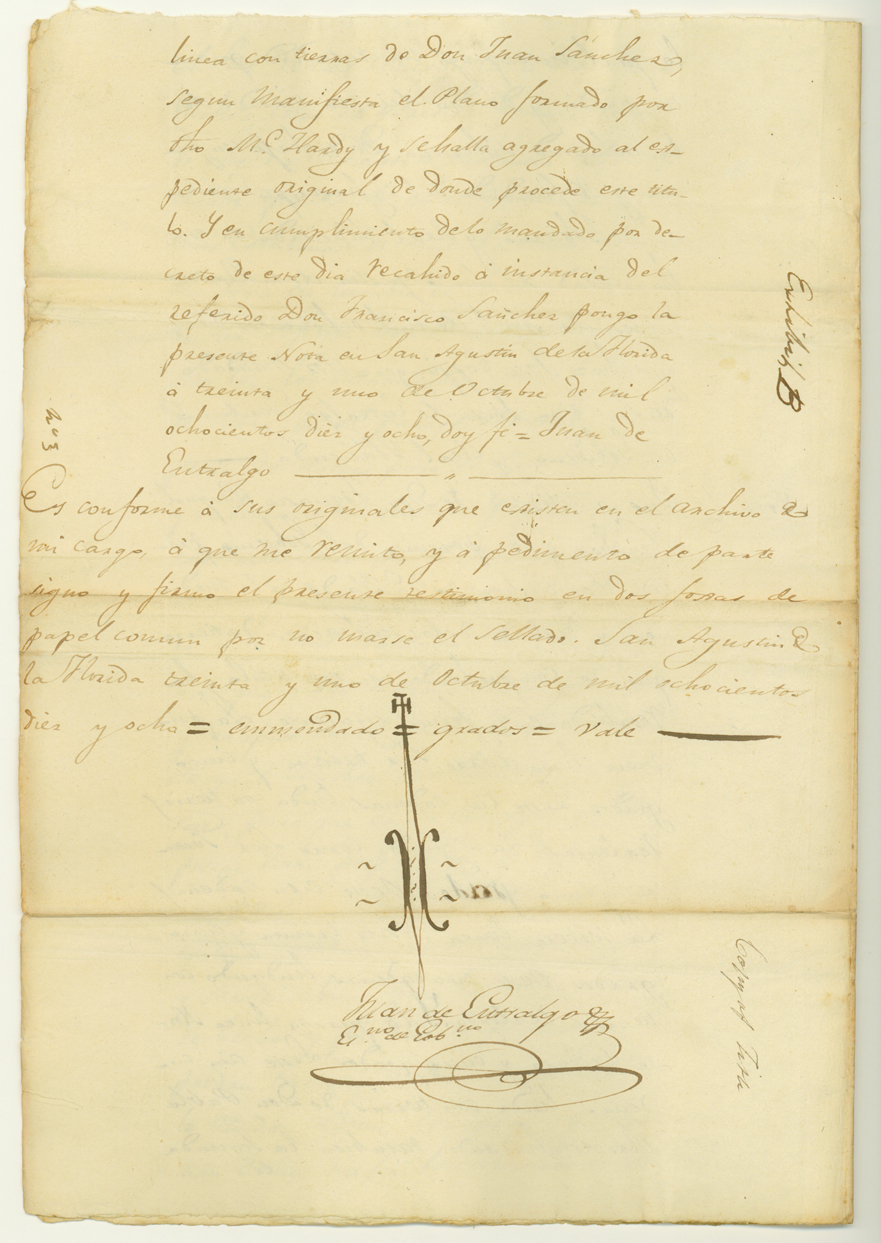 linea con tierras de Don Juan Sánchez,
segun Manifiesta el Plano formado por
dho Mc. Hardy y se halla agregado al es-
pediente original de donde procede este titu-
lo. Y en cumplimiento de lo mandado por de-
creto de este dia recahido á instancia del
referido Don Francisco Sanchez pongo la
presente Nota en San Agustin de la Florida
á treinta y uno de Octubre de mil
ochocientos diez y ocho, doy fé = Juan de
Entralgo
Es conforme á sus originales que existen en el archivo de
mi cargo, á que me remito, y á pedimento de parte
signo y firmo el presente testimonio en dos foxas de
papel comun por no usarse el sellado. San Agustin de
la Florida treinta y uno de Octubre de mil ochocientos
diez y ocho = emmendado = grados = vale
Juan de Entralgo
Es.no de Gob.no
Exhibit B
no 3
Copy of Title